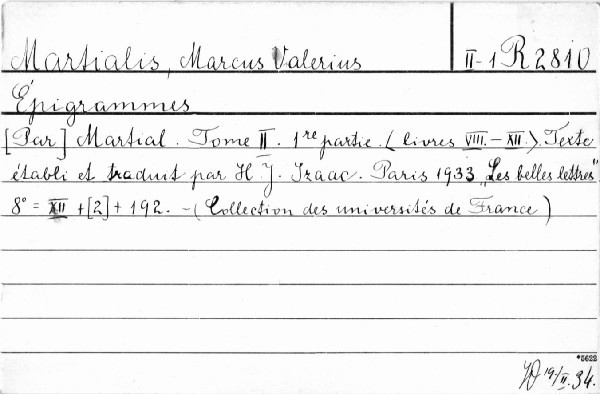 Martialis, Marcus Valerius
II-1 R 2810
Épigrammes
[Par] Martial. Tome II. 1re partie. (livres VIII. - XII.). Texte
établi et traduit par H J. Izaac. Paris 1933 „Les belles lettres"
8° = XII + [2] + 192. - (Collection des universités de France)
*5622
19/II. 34.